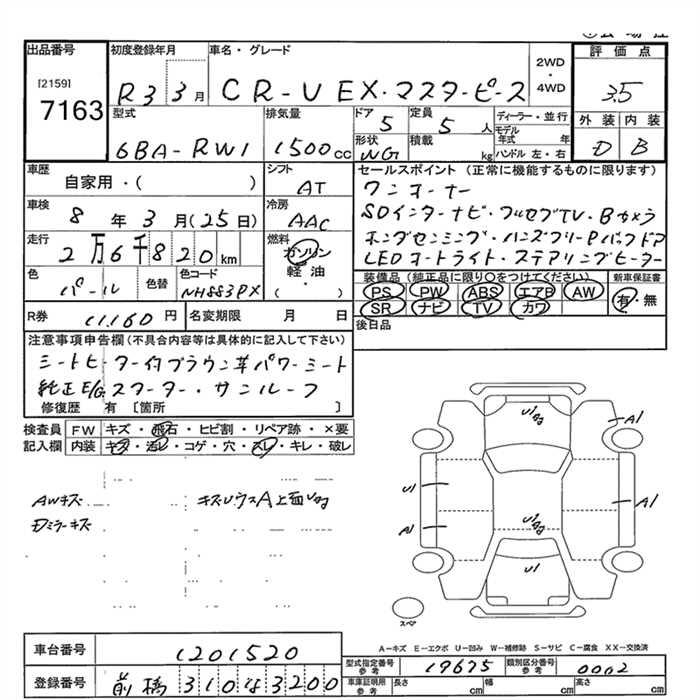 出品番号
[2159]
7163
初度登録年月
R3 3月
車名・グレード
CR-V EX・マスターピース
2WD
・
4WD
評価点
3.5
型式
6BA-RW1
排気量
1500cc
ドア
5
定員
5人
形状
WG
積載
kg
ディーラー・並行
モデル年式 年
ハンドル 左・右
外装 内装
D B
車歴
自家用・( )
シフト
AT
車検
8年3月(25日)
冷房
AAC
走行
2万6千820km
燃料
ガソリン
軽油
( )
色
パール
色替
色コード
NH883PX
R券
11,160円
名変期限 月 日
セールスポイント(正常に機能するものに限ります)
ワンオーナー
SDインターナビ・フルセグTV・Bカメラ
ホンダセンシング・ハンズフリーPバックドア
LEDオートライト・ステアリングヒーター
装備品(純正品に限り○をつけてください)
PS PW ABS エアB AW
SR ナビ TV カワ
新車保証書
有・無
後日品
注意事項申告欄(不具合内容等は具体的に記入して下さい)
シートヒーター付ブラウン革パワーシート
純正E/Gスターター・サンルーフ
修復歴 有 [箇所 ]
検査員
記入欄
FW キズ・飛石・ヒビ割・リペア跡・×要
内装 キズ・汚レ・コゲ・穴・スレ・キレ・破レ
AWキズ
Dミラーキズ
A1
U1
A1
A1
U1
スペア
A-キズ E-エクボ U-凹み W-補修跡 S-サビ C-腐食 XX-交換済
車台番号
1201520
登録番号
前橋 310 は 3200
型式指定番号
参考
19675
類別区分番号
参考
0002
車庫証明用
参考
長さ cm
幅 cm
高さ cm